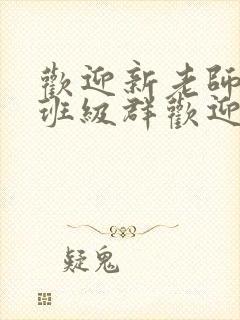 歡迎新老師
班級群歡迎
疑鬼